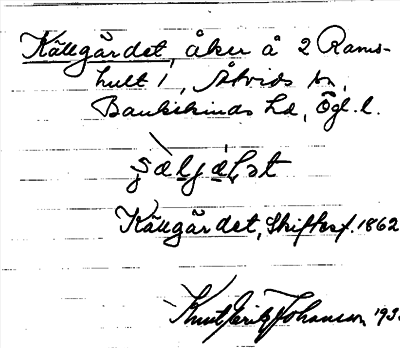 Källgärdet, åker å 2 Rams-
hult 1, Åtvids sn,
Bankekinds hd, Ögl. l.
Källgärdet, Skiftesf. 1862
Knut Erik Johansson 193